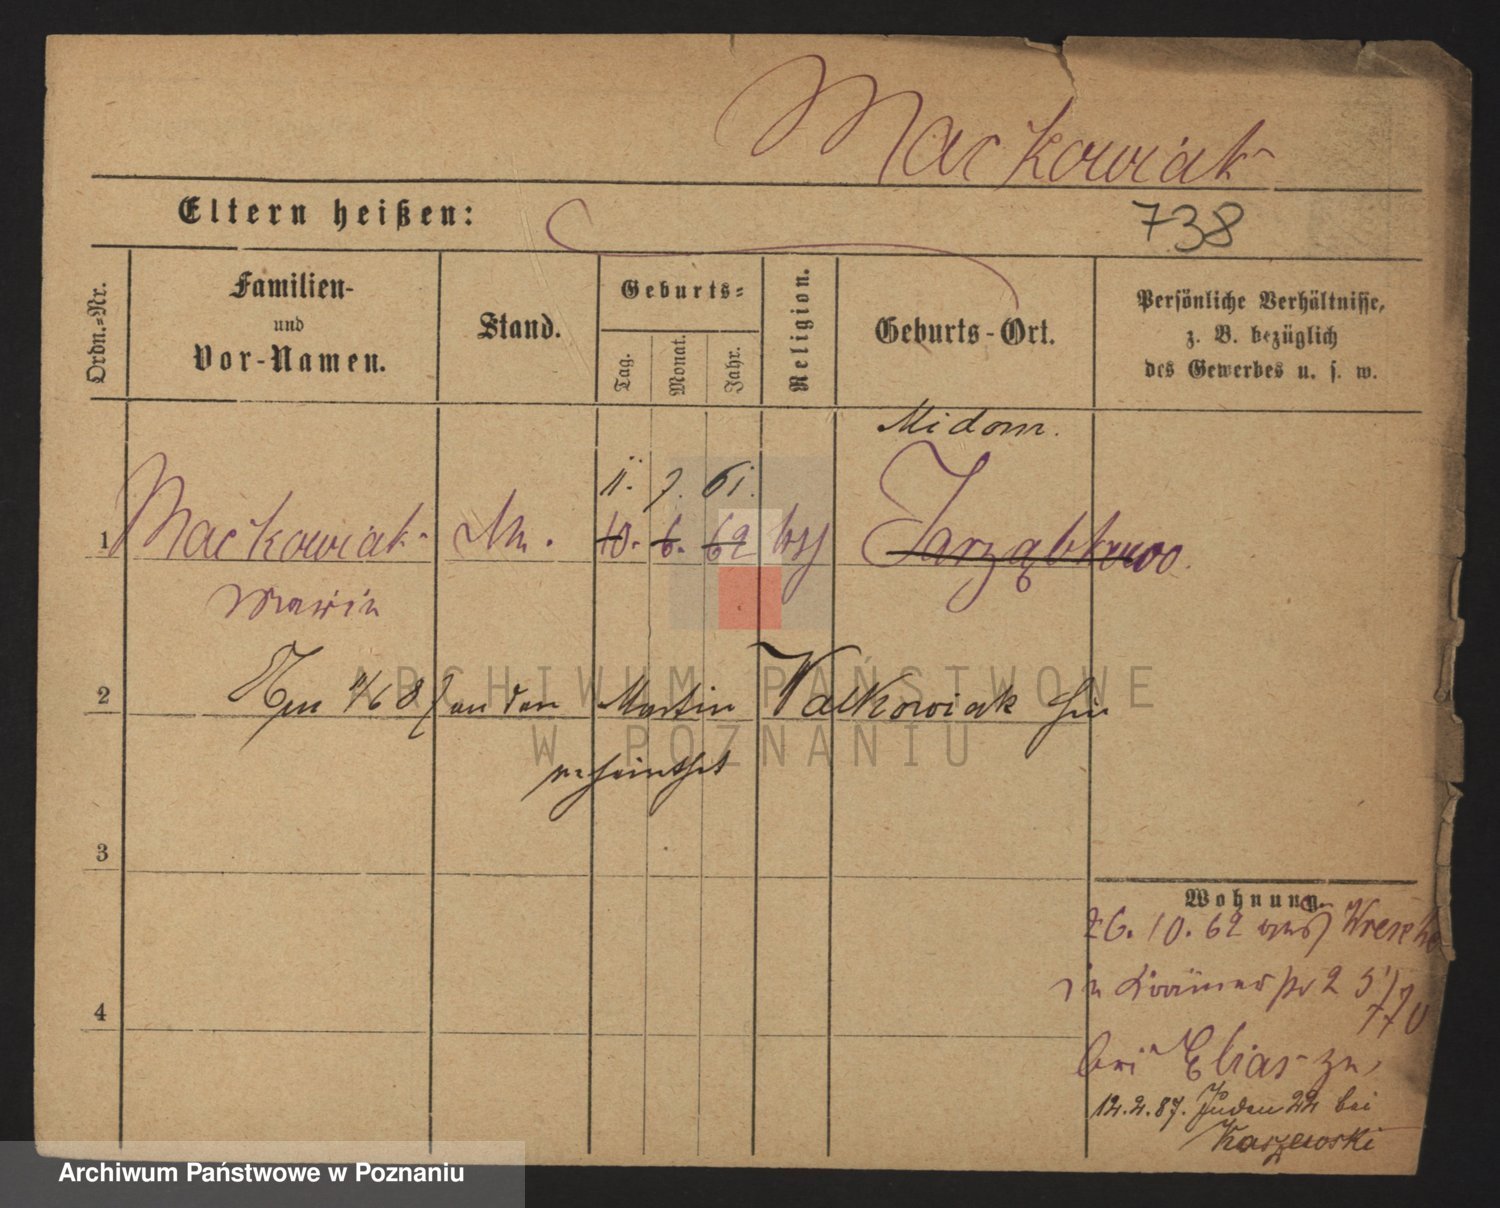 Mackowiak
Eltern heißen:
738
Ordn.-Nr.
Familien-
und
Vor-Namen.
Stand.
Geburts-
Tag.
Monat.
Jahr.
Religion.
Geburts-Ort.
Persönliche Verhältnisse,
z. B. bezüglich
des Gewerbes u. s. w.
Midom.
11. 7. 61.
1 Mackowiak 10. 6. 62 Jarząbkowo.
Marie
2 an den Martin Walkowiak hier
verheirathet
3
4
Wohnung.
26. 10. 62 aus
in Krämerstr 2
770
bei Elias zu
12.2.87. Juden 22 bei
Kaszewski
ARCHIWUM PAŃSTWOWE
W POZNANIU
Archiwum Państwowe w Poznaniu